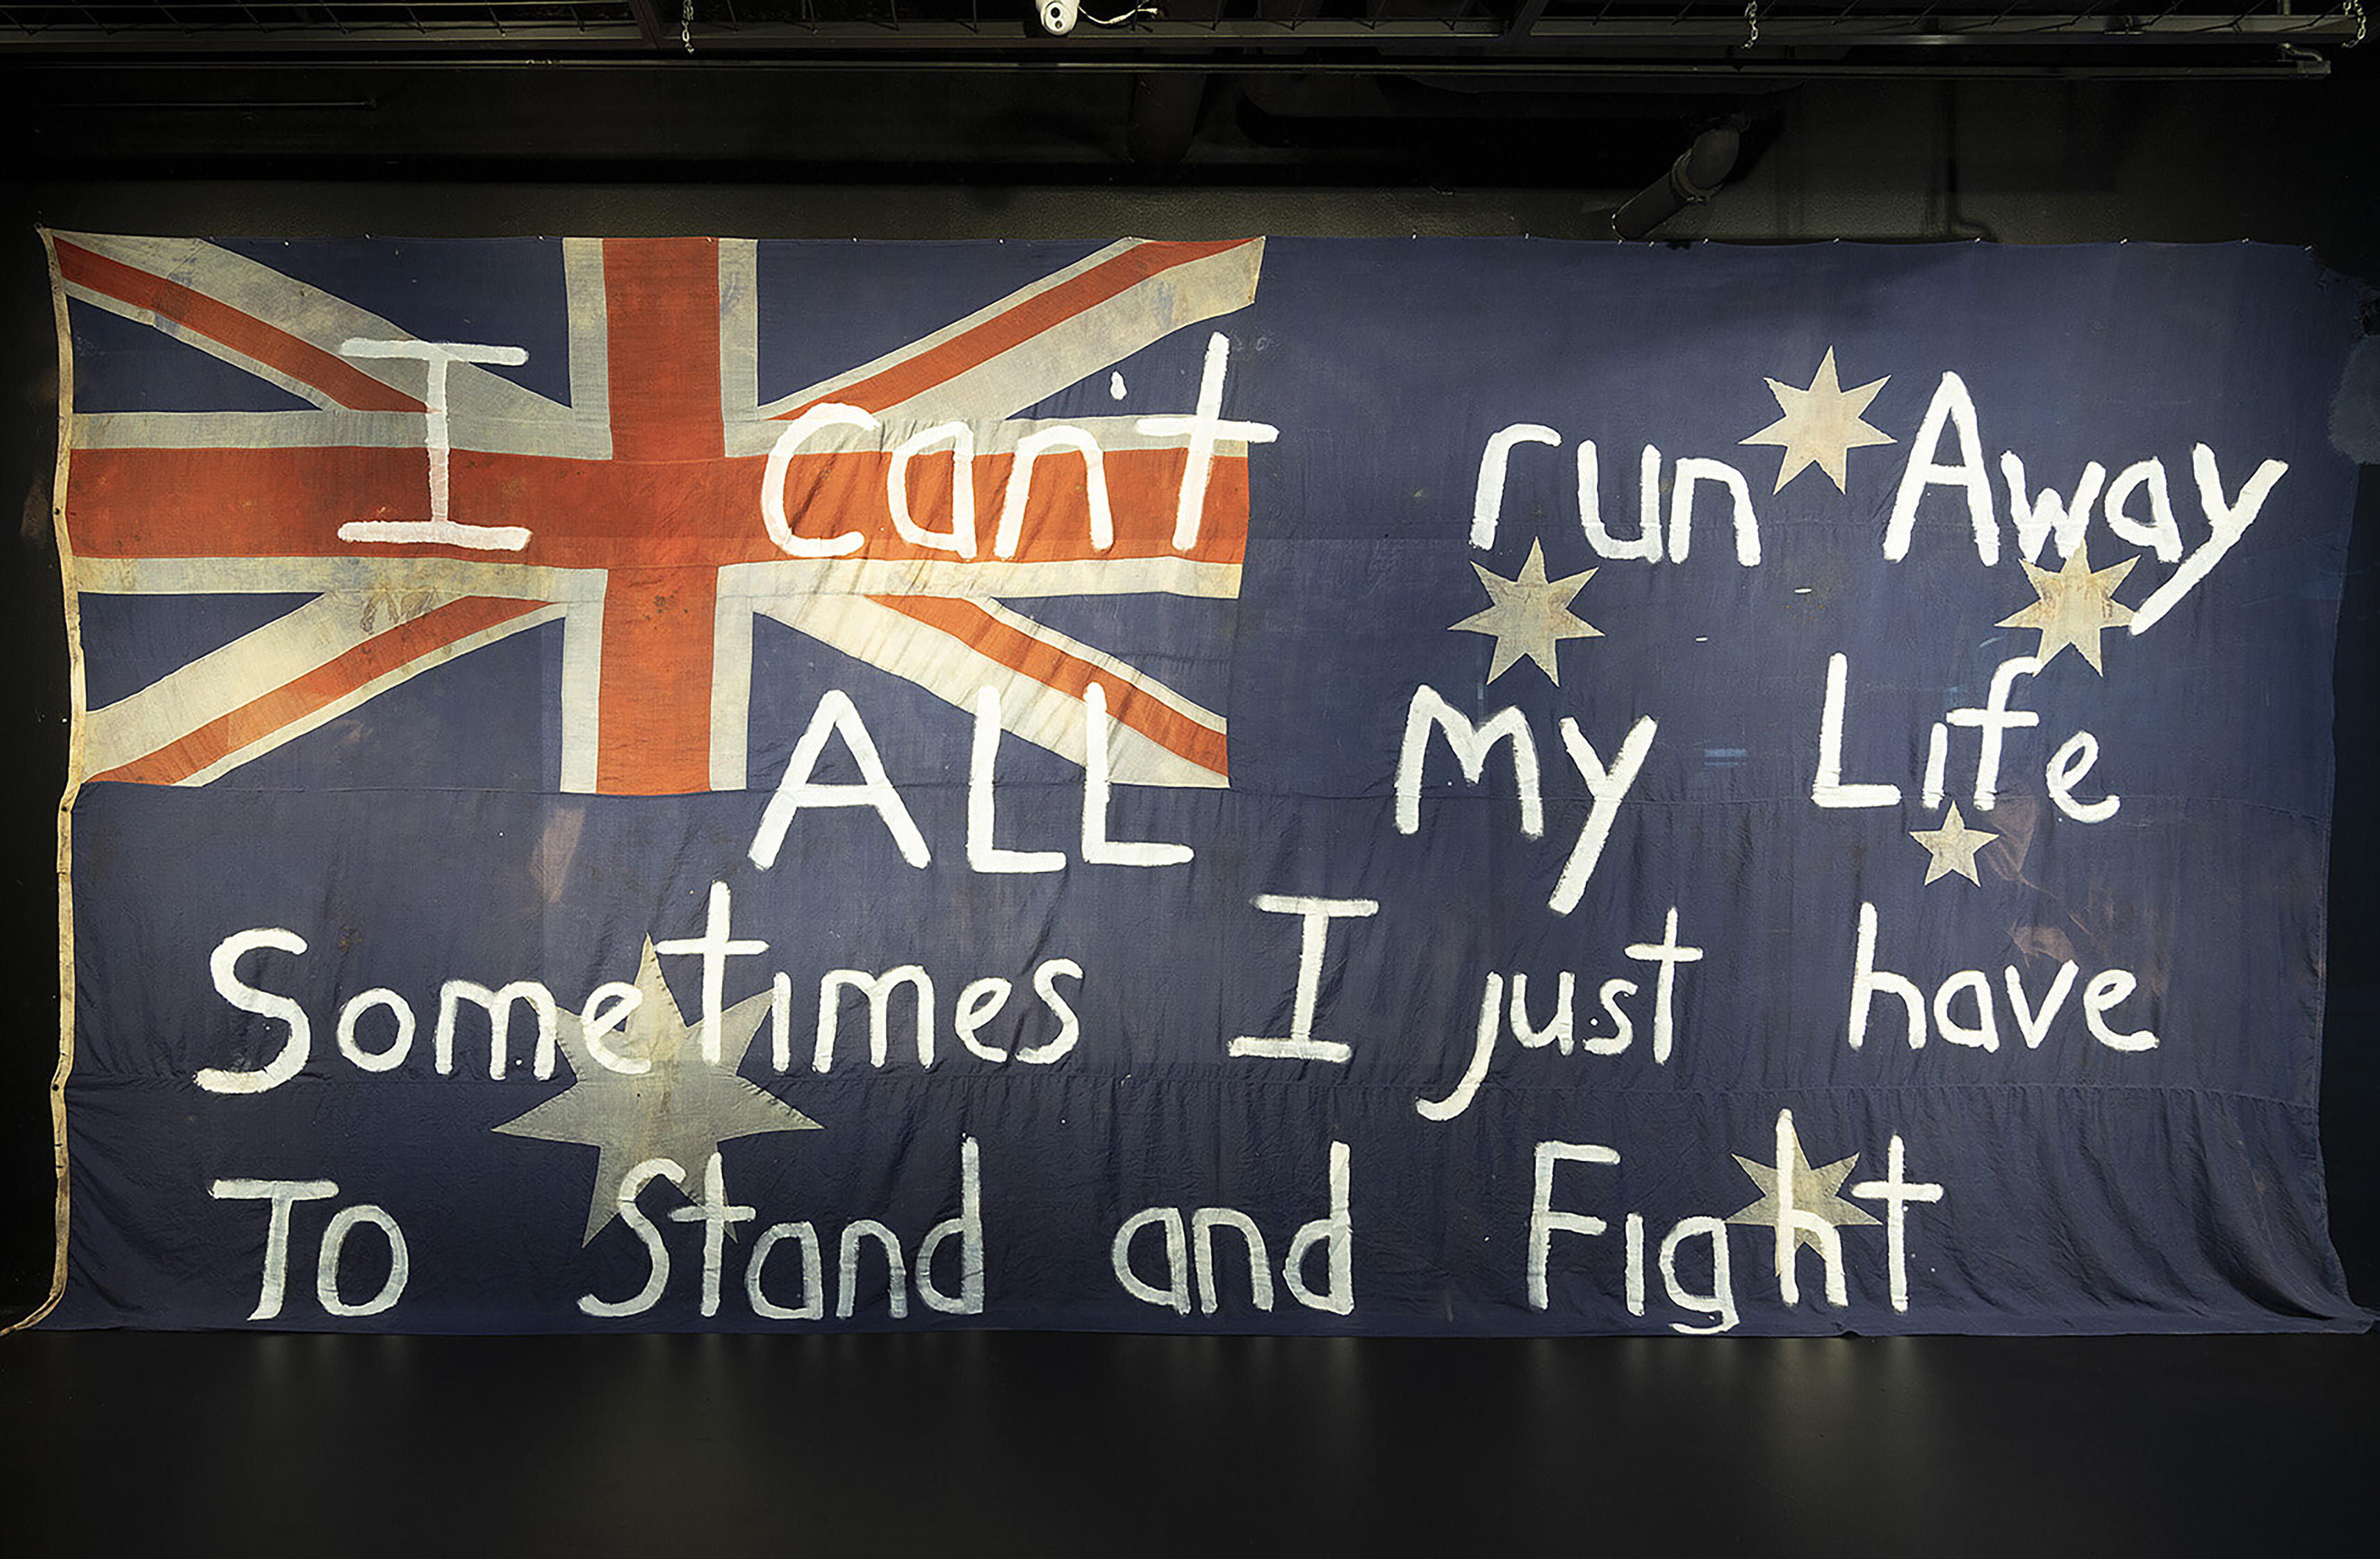 I can't run Away
ALL My Life
Sometimes I just have
To Stand and Fight